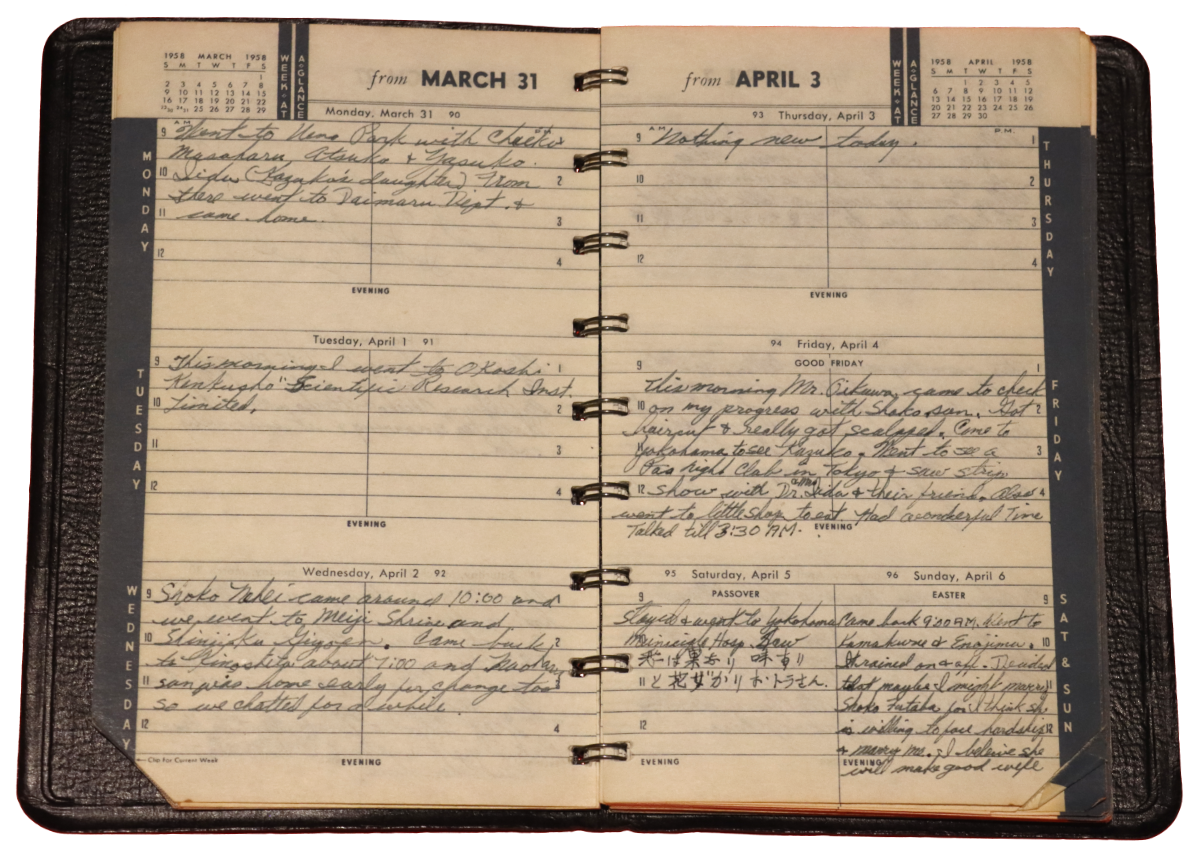 1958 MARCH 1958
S M T W T F S
1
2 3 4 5 6 7 8
9 10 11 12 13 14 15
16 17 18 19 20 21 22
23/30 24/31 25 26 27 28 29
WEEK•AT
A•GLANCE
from MARCH 31
Monday, March 31 90
MONDAY
A.M.
9 Went to Ueno Park with Chaeko 1
Masaharu, Atsuko & Yasuko.
10 Iida (Kazuko's daughter) From 2
there went to Daimaru Dept. &
11 came home. 3
12 4
EVENING
Tuesday, April 1 91
TUESDAY
9 This morning I went to Okoshi 1
Kenkusho "Scientific Research Inst.
10 Limited. 2
11 3
12 4
EVENING
Wednesday, April 2 92
WEDNESDAY
9 Shoko came around 10:00 and
we went to Meiji Shrine and
10 Shinjuku Gyoen. Came back 2
to Kinoshita about 7:00 and
11 san was home early for change too
so we chatted for a while.
12 4
Clip For Current Week
EVENING
from APRIL 3
WEEK•AT
A•GLANCE
1958 APRIL 1958
S M T W T F S
1 2 3 4 5
6 7 8 9 10 11 12
13 14 15 16 17 18 19
20 21 22 23 24 25 26
27 28 29 30
93 Thursday, April 3
THURSDAY
A.M. P.M.
9 Nothing new today. 1
10 2
11 3
12 4
EVENING
94 Friday, April 4
GOOD FRIDAY
FRIDAY
9 1
This morning Mr. Oikawa came to check
10 on my progress with Shoko san. Got 2
haircut & really got scalped. Came to
Yokohama to see Kazuko. Went to see a 3
night Club in Tokyo & saw strip
12 show with Dr. & Mrs Iida & their friend. Also 4
went to little shop to eat Had a wonderful Time
Talked till 3:30 AM.
EVENING
95 Saturday, April 5
PASSOVER
9
Stayed & went to Yokohama
Hosp. Saw
恋は 味あり
11 と 花ざかり おトラさん.
12
EVENING
96 Sunday, April 6
EASTER
SAT & SUN
9
Came back 9:00 AM. Went to
Kamakura & Enojima. 10
It rained on & off. Decided
that maybe I might marry 11
Shoko Futaba for I think she
is willing to face hardship 12
& marry me. I beleive she
EVENING
will make good wife